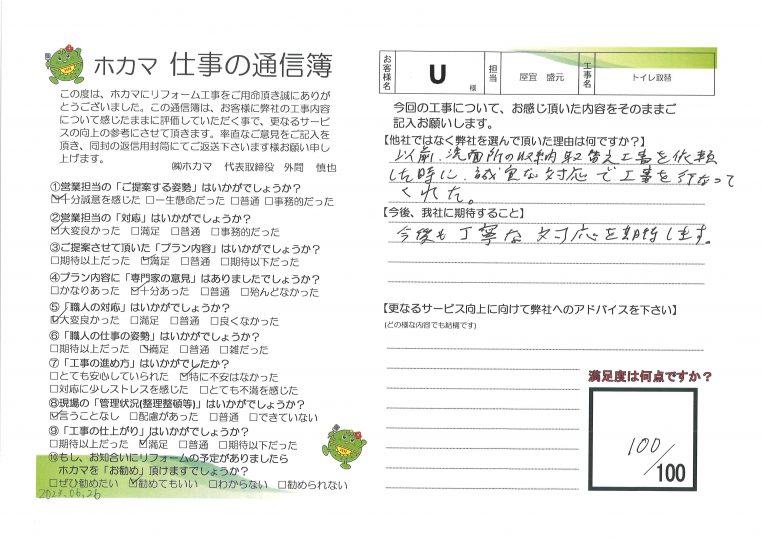 ホカマ 仕事の通信簿
この度は、ホカマにリフォーム工事をご用命頂き誠にありが
とうございました。この通信簿は、お客様に弊社の工事内容
について感じたままに評価していただく事で、更なるサービ
スの向上の参考にさせて頂きます。率直なご意見をご記入を
頂き、同封の返信用封筒にてご返送下さいます様お願い申し
上げます。
㈱ホカマ 代表取締役 外間 慎也
①営業担当の「ご提案する姿勢」はいかがでしょうか?
☑十分誠意を感じた □一生懸命だった □普通 □事務的だった
②営業担当の「対応」はいかがでしょうか?
☑大変良かった □満足 □普通 □事務的だった
③ご提案させて頂いた「プラン内容」はいかがでしょうか?
□期待以上だった ☑満足 □普通 □期待以下だった
④プラン内容に「専門家の意見」はありましたでしょうか?
□かなりあった ☑十分あった □普通 □殆んどなかった
⑤「職人の対応」はいかがでしょうか?
☑大変良かった □満足 □普通 □良くなかった
⑥「職人の仕事の姿勢」はいかがでしょうか?
□期待以上だった ☑満足 □普通 □雑だった
⑦「工事の進め方」はいかがでしたか?
□とても安心していられた ☑特に不安はなかった
□対応に少しストレスを感じた □とても不満を感じた
⑧現場の「管理状況(整理整頓等)」はいかがでしょうか?
☑言うことなし □配慮があった □普通 □できていない
⑨「工事の仕上がり」はいかがでしょうか?
□期待以上だった ☑満足 □普通 □期待以下だった
⑩もし、お知合いにリフォームの予定がありましたら
ホカマを「お勧め」頂けますでしょうか?
□ぜひ勧めたい ☑勧めてもいい □わからない □勧められない
2023.06.26
お客様名 U 様 担当 屋宜 盛元 工事名 トイレ取替
今回の工事について、お感じ頂いた内容をそのままご
記入お願いします。
【他社ではなく弊社を選んで頂いた理由は何ですか?】
以前、洗面所の収納取替え工事を依頼
した時に、誠実な対応で工事を行なって
くれた。
【今後、我社に期待すること】
今後も丁寧な対応を期待します。
【更なるサービス向上に向けて弊社へのアドバイスを下さい】
(どの様な内容でも結構です)
満足度は何点ですか?
100/100